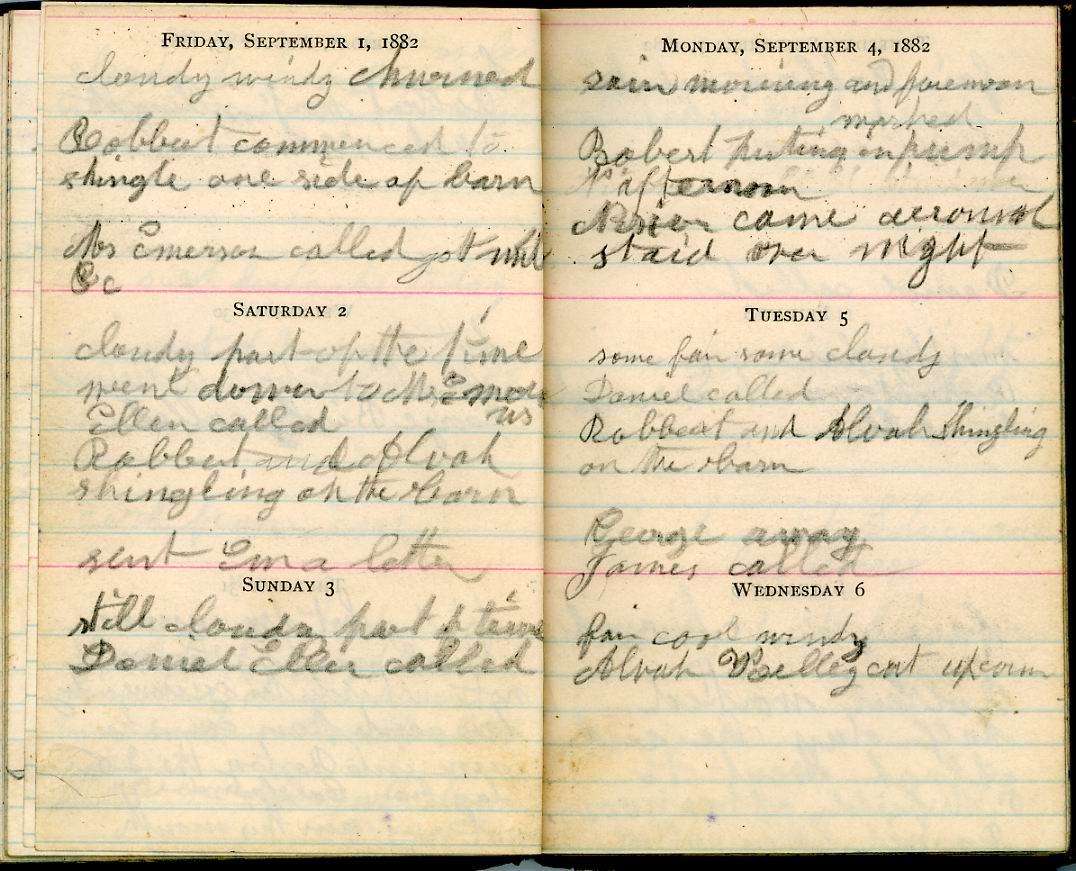 FRIDAY, SEPTEMBER 1, 1882
cloudy windy churned
Robbert commenced to
shingle one side of barn
Mrs Emerson called got milk
&c
SATURDAY 2
cloudy part of the time
went down to Mr Emer
Ellen called
Robbert and Alvah
shingling on the barn
sent Em a letter
SUNDAY 3
still cloudy part of time
Daniel Ellen called
MONDAY, SEPTEMBER 4, 1882
rain morning and forenoon
washed
Robert puting in pump
afternoon
came around
staid over night
TUESDAY 5
some fair some cloudy
Daniel called
Robbert and Alvah Shingling
on the barn
George away
James called
WEDNESDAY 6
fair cool windy
Alvah cut up corn